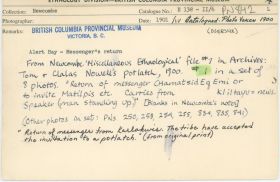 ETHNOLOGY DIVISION—BRITISH COLUMBIA PROVINCIAL MUSEUM
Newcombe
Catalogue No.
Photographer:
Date: 1901
BRITISH COLUMBIA PROVINCIAL MUSEUM
VICTORIA, B. C.
Alert Bay - Messenger's return
From Newcombe 'Miscellaneous Ethnological' file #1 in Archives:
Tom + Clalas Nowell's potlatch, 1900. #1 in a set of
8 photos. "Return of messenger (Hamatsa) to
to invite Matilpis etc Carries from news.
Speaker (man standing up)" [Blanks in Newcombe's notes]
(Other photos in set: PNs 250, 258, 254, 255, 834, 835, 841)
"Return of messengers from Karlukwees. The tribe have accepted
the invitation to a potlatch." (from original print)